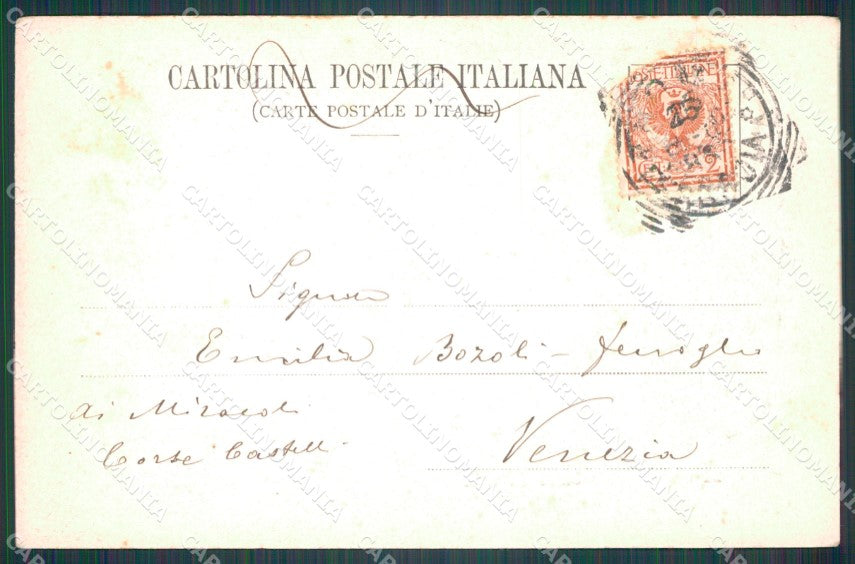 CARTOLINA POSTALE ITALIANA
(CARTE POSTALE D'ITALIE)
POSTE ITALIANE
25
2
Signora
Emilia Bozoli - Ferroglio
ai Miracoli
Corte Castelli
Venezia
CARTOLINOMANIA